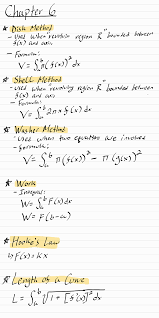 Chapter 6
★ Disk Method
- Used when revolving region "R" bounded between
f(x) and axis
- Formula:
V = ∫ₐᵇ π(f(x))² dx
★ Shell Method
- Used when revolving region "R" bounded between
f(x) and axis
- Formula:
V = ∫ₐᵇ 2πx f(x) dx
★ Washer Method
- Used when two equations are involved
- Formula:
V = ∫ₐᵇ π(f(x))² - π(g(x))²
★ Work
- Integral:
W = ∫ₐᵇ F(x) dx
W = F(b-a)
★ Hooke's Law
↳ F(x) = kx
★ Length of a Curve
L = ∫ₐᵇ √(1 + [f'(x)]²) dx